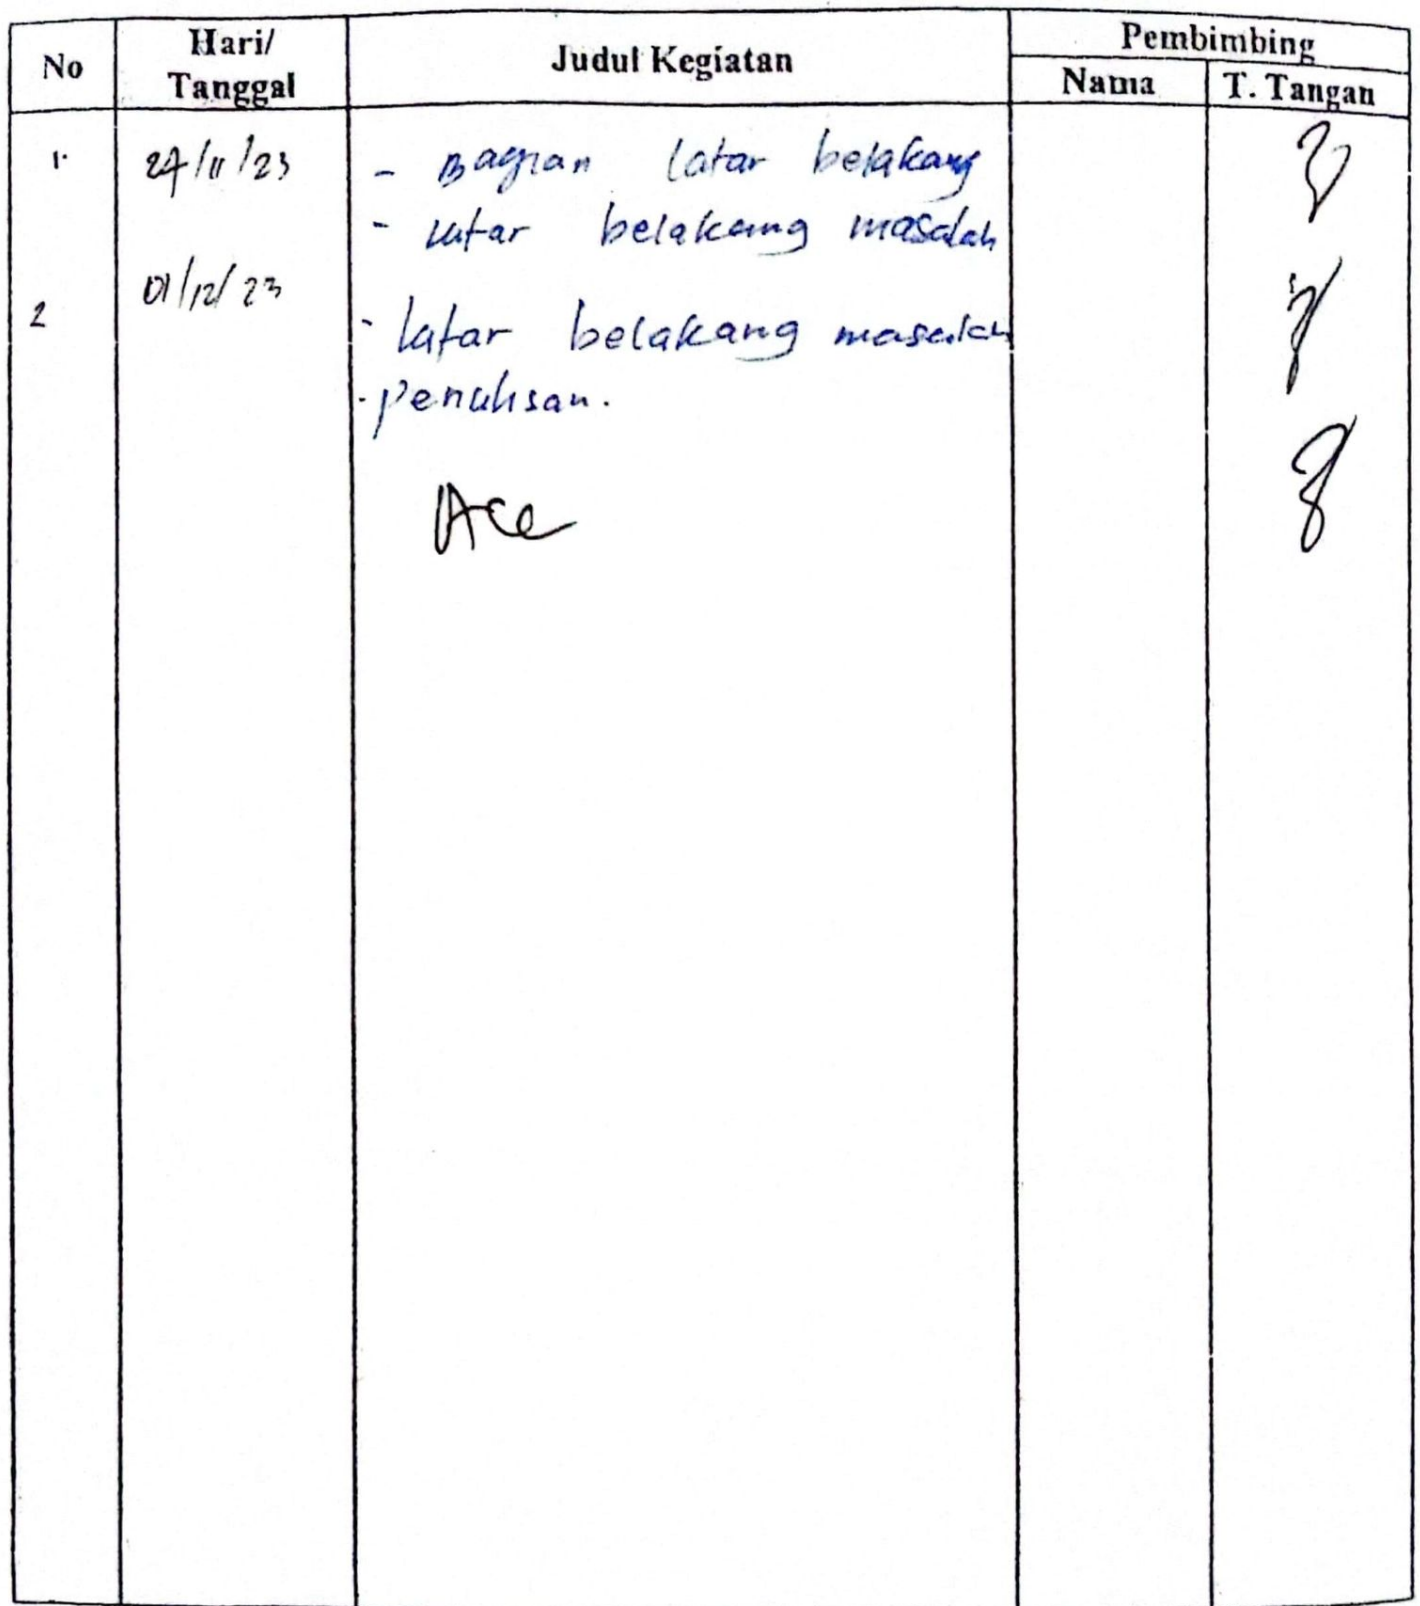 No Hari/ Tanggal Judul Kegiatan Pembimbing
Nama T. Tangan
1. 27/11/23 - Bagian latar belakang
- latar belakang masalah
2 01/12/23 - latar belakang masalah
- penulisan.
Acc